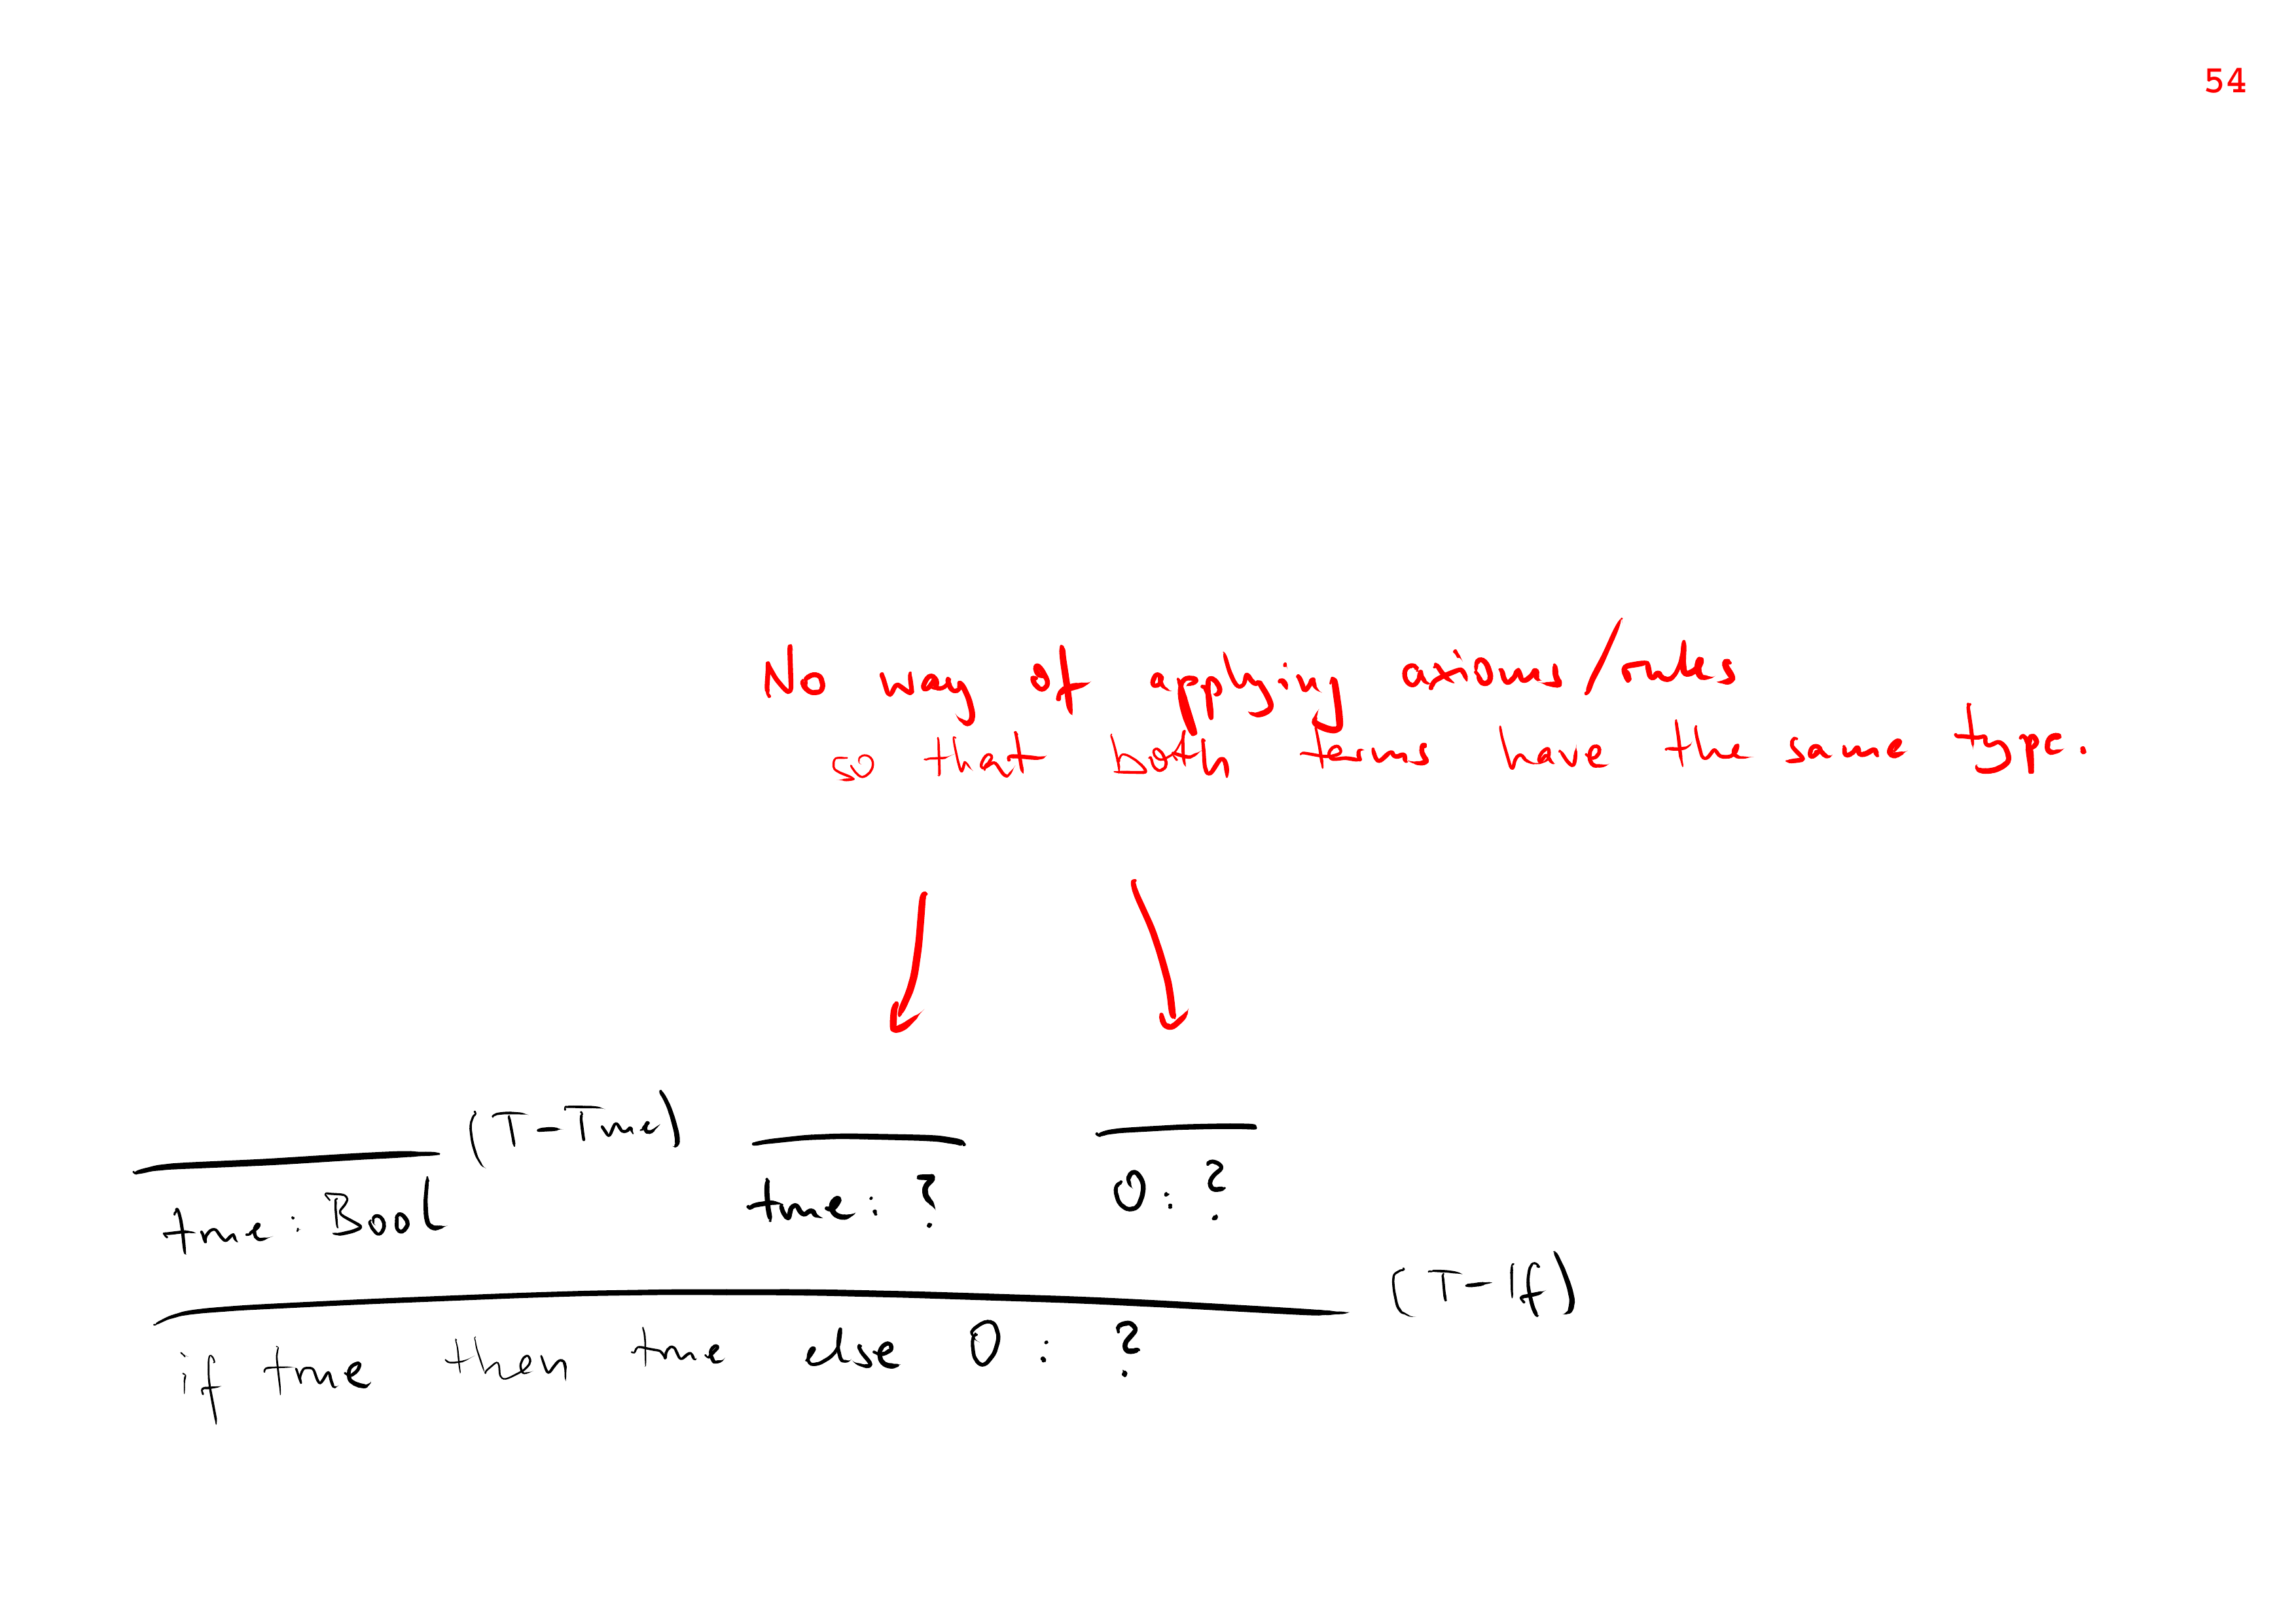 54
No way of applying axioms/rules
so that both terms have the same type.
(T-True)
true: Bool
true: ?
0: ?
(T-If)
if true then true else 0: ?